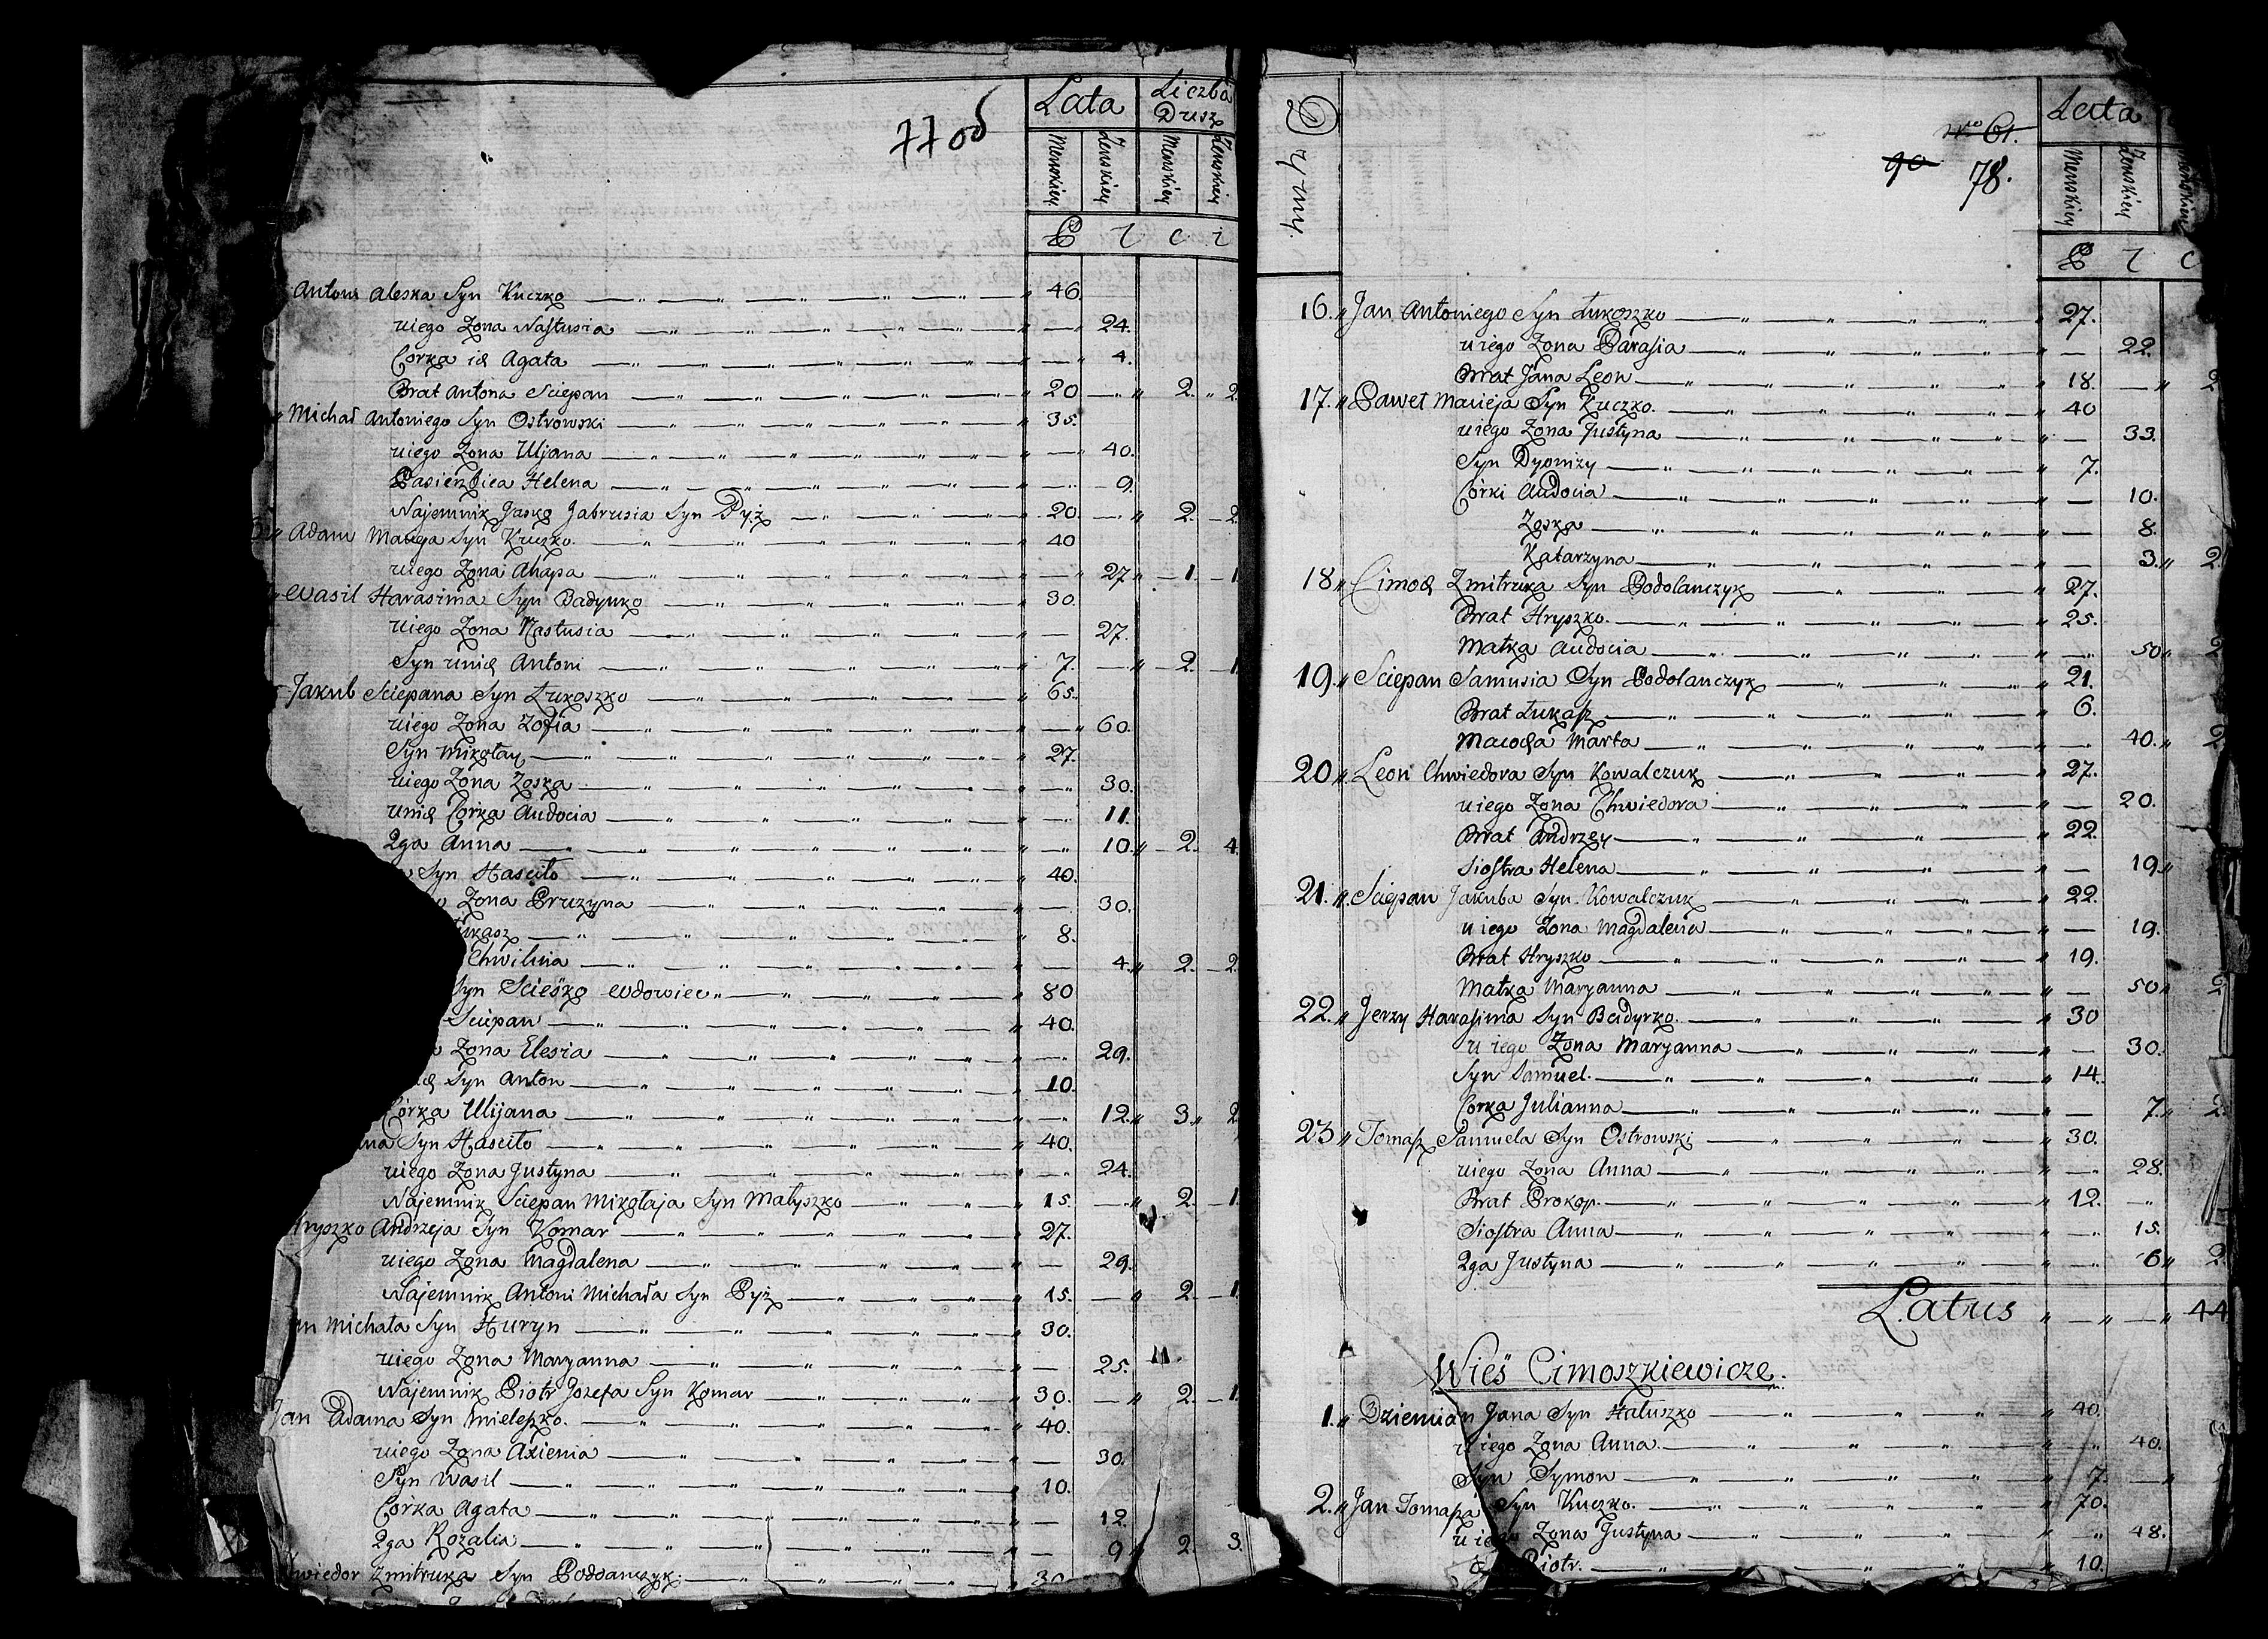 77 об
Lata
Liczba Dusz
Męnskiey Żenskiey Męnskiey Żenskiey
Antoni Aleska Syn Kuczko 46.
u iego Żona Nastusia 24.
Corka ich Agata 4.
Brat Antona Sciepan 20 2. 2
Michał Antoniego Syn Ostrowski 35.
u iego Żona Uljana 40.
Pasierbica Helena 9.
Najemnik Jasko Jabrusia Syn Pyż 20 2. 2
Adam Syn Kuczko 40
u iego Żona Ahapa 27 1. 1
Wasil Harasima Syn Badynko 30.
u iego Żona Nastusia 27.
Syn u nich Antoni 7. 2. 1
Jakub Sciepana Syn Łukoszko 65.
u iego Żona Zofia 60.
Syn Mikołay 27.
u iego Żona Zoska 30.
u nich Corka Audocia 11.
2ga Anna 10. 2. 4.
Syn Hasciło 40.
Żona Pruzyna 30.
Łukasz 8.
Chwilina 4. 2. 2
Syn Scieszko Wdowiec 80
Sciepan 40.
Żona Elesia 29.
Syn Anton 10.
Córka Ulijana 12. 3. 2
Syn Hasciło 40.
u iego Żona Justyna 24.
Najemnik Sciepan Mikołaja Syn Małyszko 15. 2. 1.
Hryszko Andrzeja Syn Komar 27.
u iego Żona Magdalena 29.
Najemnik Antoni Michała Syn Pyż 15. 2. 1.
Michała Syn Huryn 30.
u iego Żona Maryanna 25.
Najemnik Piotr Jozefa Syn Komar 30. 2. 1.
Jan Adama Syn Mieleszko 40.
u iego Żona Axienia 30.
Syn Wasil 10.
Córka Agata 12.
2ga Rozalia 9 2. 3.
Chwiedor Zmitruka Syn 30
Dymy.
Nro 61.
90 78.
Lata
Męnskiey Żenskiey Męnskiey
16. Jan Antoniego Syn Łukoszko 27.
u iego Żona Parasia 22.
Brat Jana Leon 18. 2
17. Paweł Macieja Syn Kuczko. 40
u iego Żona Justyna 33.
Syn Dyonizy 7.
Córki Audocia 10.
Zoska 8.
Katarzyna 3. 2
18 Cimoch Zmitruka Syn Podolanczyk 27.
Brat Hryszko. 25.
Matka Audocia 50 2
19. Sciepan Samusia Syn Podolanczyk 21.
Brat Łukasz 6.
Macocha Marta 40. 2
20 Leon Chwiedora Syn Kowalczuk 27.
u iego Żona Chwiedora 20.
Brat Andrzey 22.
Siostra Helena 19
21. Sciepan Jakuba Syn Kowalczuk 22.
u iego Żona Magdalena 19.
Brat Hryszko 19.
Matka Maryanna 50 2
22. Jerzy Harasima Syn Badyrko. 30
u iego Żona Maryanna 30.
Syn Samuel. 14.
Corka Julianna 7. 2
23 Tomasz Samuela Syn Ostrowski 30.
u iego Żona Anna 28.
Brat Prokop. 12.
Siostra Anna 15.
2ga Justyna 6 2.
Latus 44
Wieś Cimoszkiewicze.
1. Dziemian Jana Syn Hałuszko 40.
u iego Żona Anna. 40.
Syn Symon 7.
2. Jan Tomasza Syn Kuczko. 70.
u iego Żona Justyna 48.
Piotr. 10.